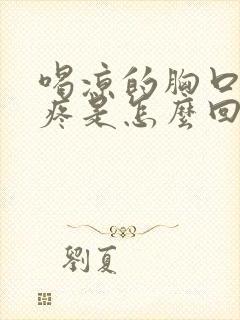 喝凉的胸口
疼是怎麼回
劉夏